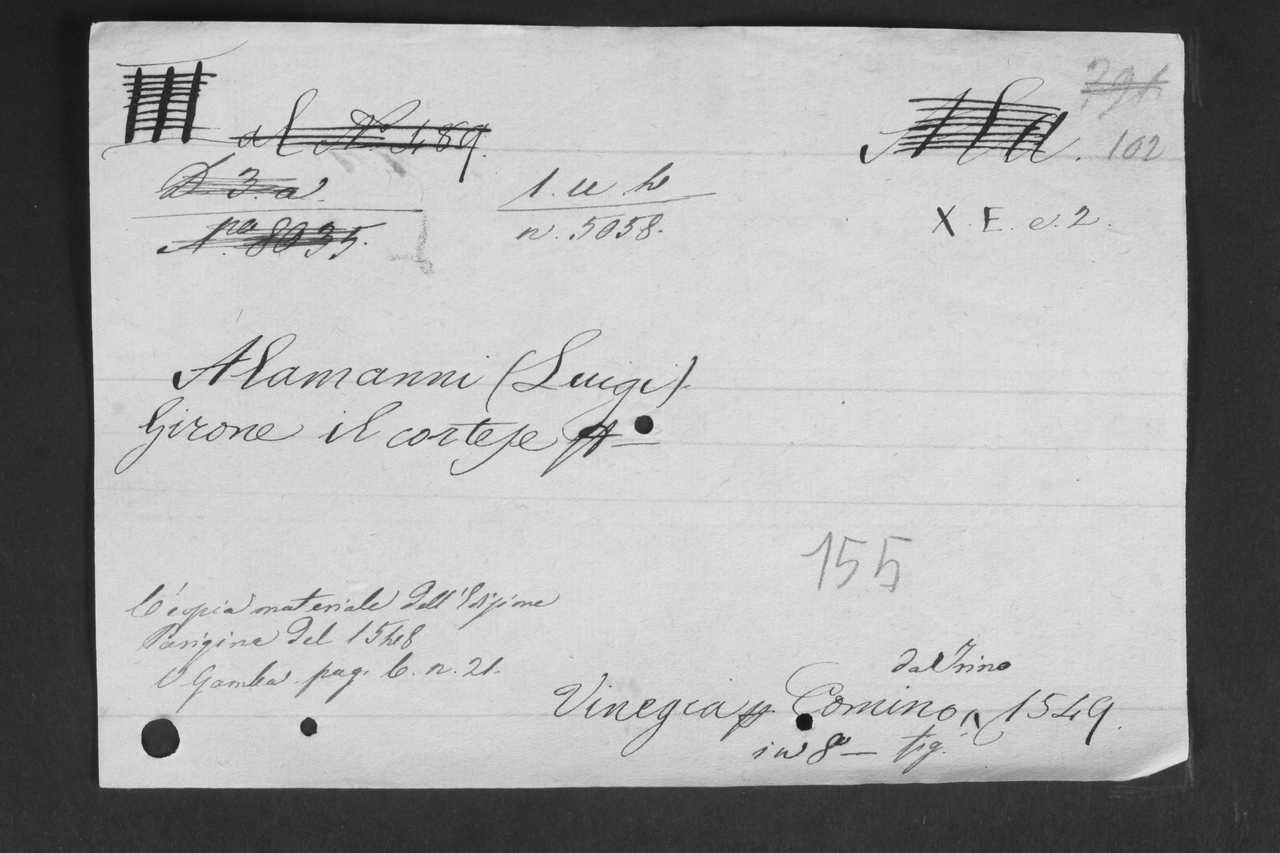 791
al N.º 489.
Ala. 102
D. 3. a.
N.ro 8035.
n. 5058.
X. E. c. 2.
Alamanni (Luigi)
Girone il cortese
155
copia materiale dell'Edizione
Parigina del 1548
V. Gamba pag. 6. n. 21.
dal Trino
Vinegia pp Comino ^ 1549.
in 8º — fig.